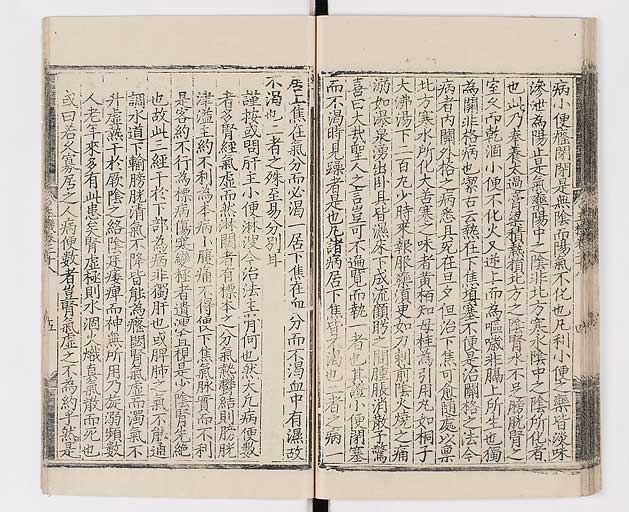 病小便癃閉閉是無陰而陽氣不化也凡利小便之藥皆淡味
滲泄為陽止是氣藥陽中之陰非北方寒水陰中之陰所化者
也此乃奉養太過膏粱積熱損北方之陰腎水不足膀胱腎之
室久而乾涸小便不化火又逆上而為嘔噦非膈上所生也獨
為關非格病也潔古云熱在下焦填塞不便是治關格之法今
病者內關外格之病悉具死在旦夕但治下焦可愈隨處以稟
北方寒水所化大苦寒之味者黃栢知母桂為引用丸如桐子
大沸湯下二百丸少時來報服藥須臾如刀刺前陰火燒之痛
溺如瀑泉湧出臥具皆濕床下成流顧盼之間腫脹消散予驚
喜曰大哉聖人之言豈可不遍覽而執一者也其證小便閉塞
而不渴時見躁者是也凡諸病居下焦皆不渴也二者之病一
居上焦在氣分而必渴一居下焦在血分而不渴血中有濕故
不渴也二者之殊至易分別耳
謹按或問肝主小便淋溲今治法主腎何也然大凡病便數
者多腎經氣虛而然淋閉者有標本之分氣熱欝結則膀胱
津溢主約不利為本病小腹痛不得便下焦氣脉實而不利
是客約不行為標病傷寒變極者遺溲直視是少陰腎先絕
也故此三經干於下部為病非獨肝也或脾肺之氣不能通
調水道下輸膀胱清氣不降皆能為癃閉腎氣虛而濁氣不
升虛熱干於厥陰之絡陰廷痿痺而神無所用乃旋溺頻數
人老年來多有此患矣腎虛極則水涸火熾真氣散而死也
或曰若久寡居之人病便數者豈腎氣虛之不為約乎然是